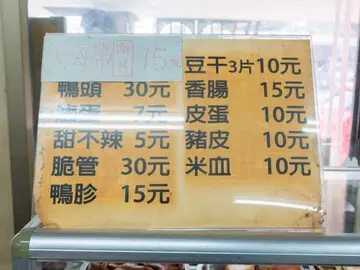 15元
鴨頭 30元
滷蛋 7元
甜不辣 5元
脆管 30元
鴨胗 15元
豆干3片10元
香腸 15元
皮蛋 10元
豬皮 10元
米血 10元